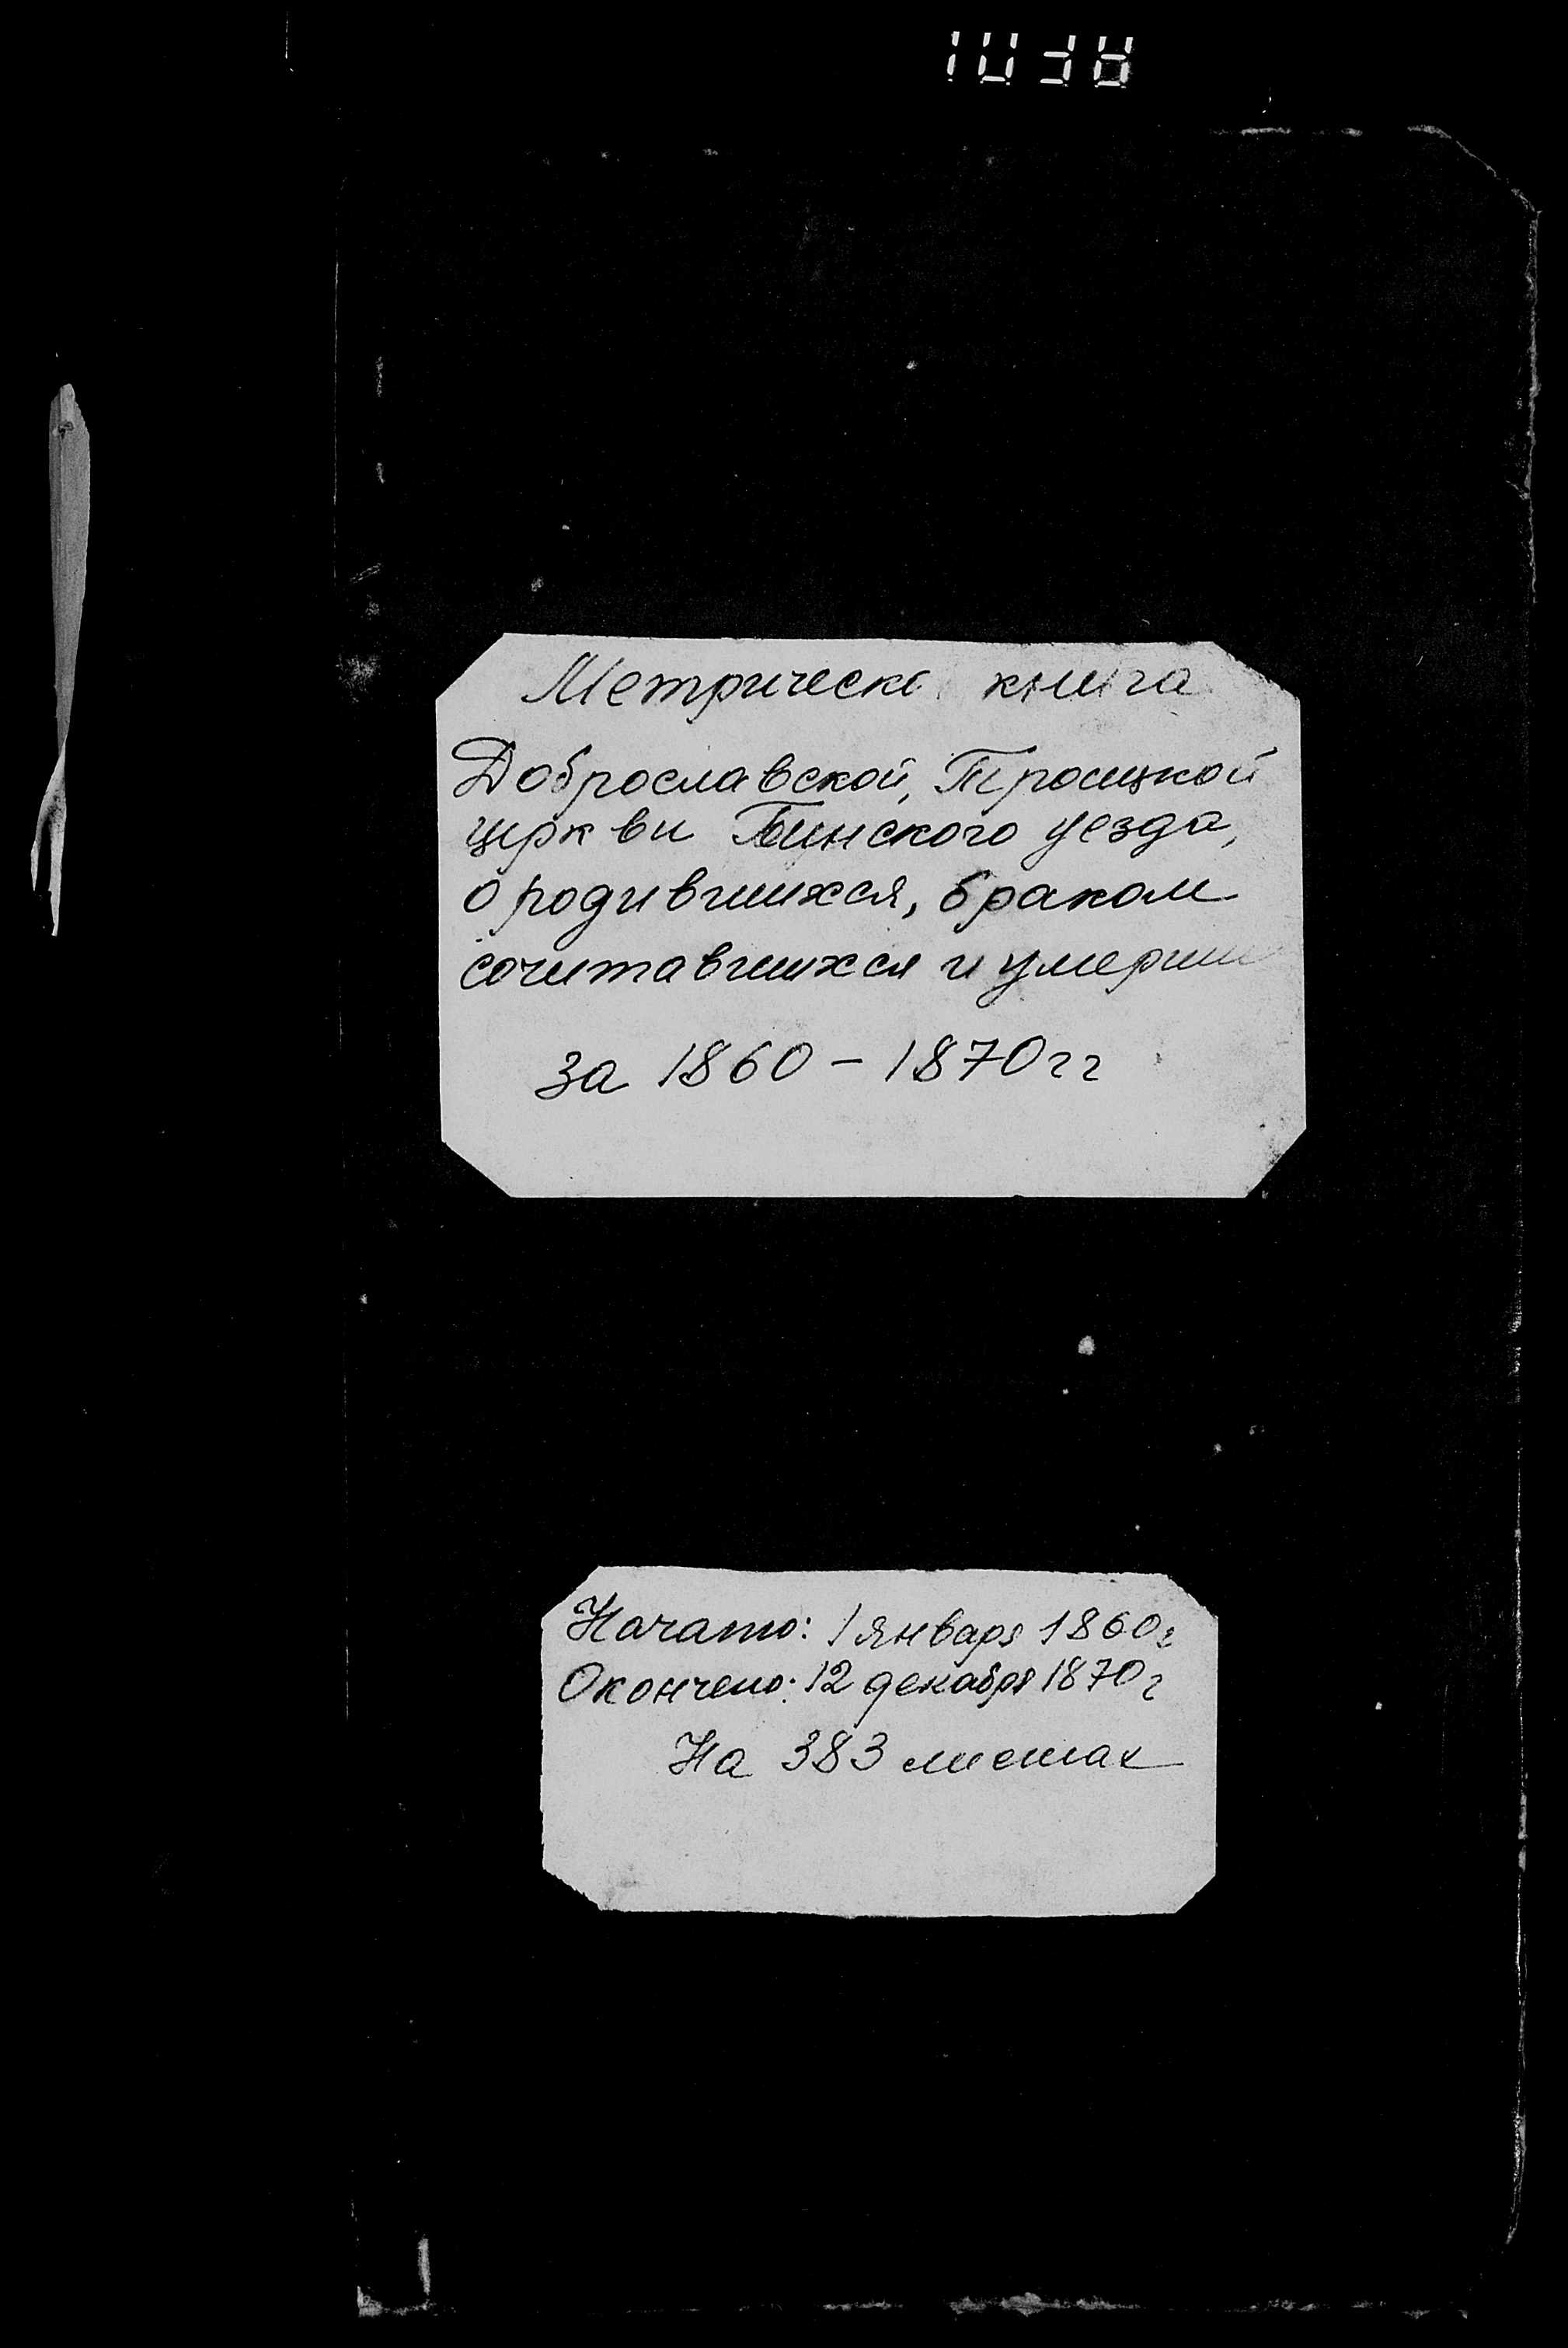 Метрическа книга
Доброславской, Троицкой
церкви Пинского уезда,
о родившихся, браком
сочитавшихся и умерши
за 1860 - 1870 гг
Начато: 1 января 1860 г
Окончено: 12 декабря 1870 г
На 383 листах